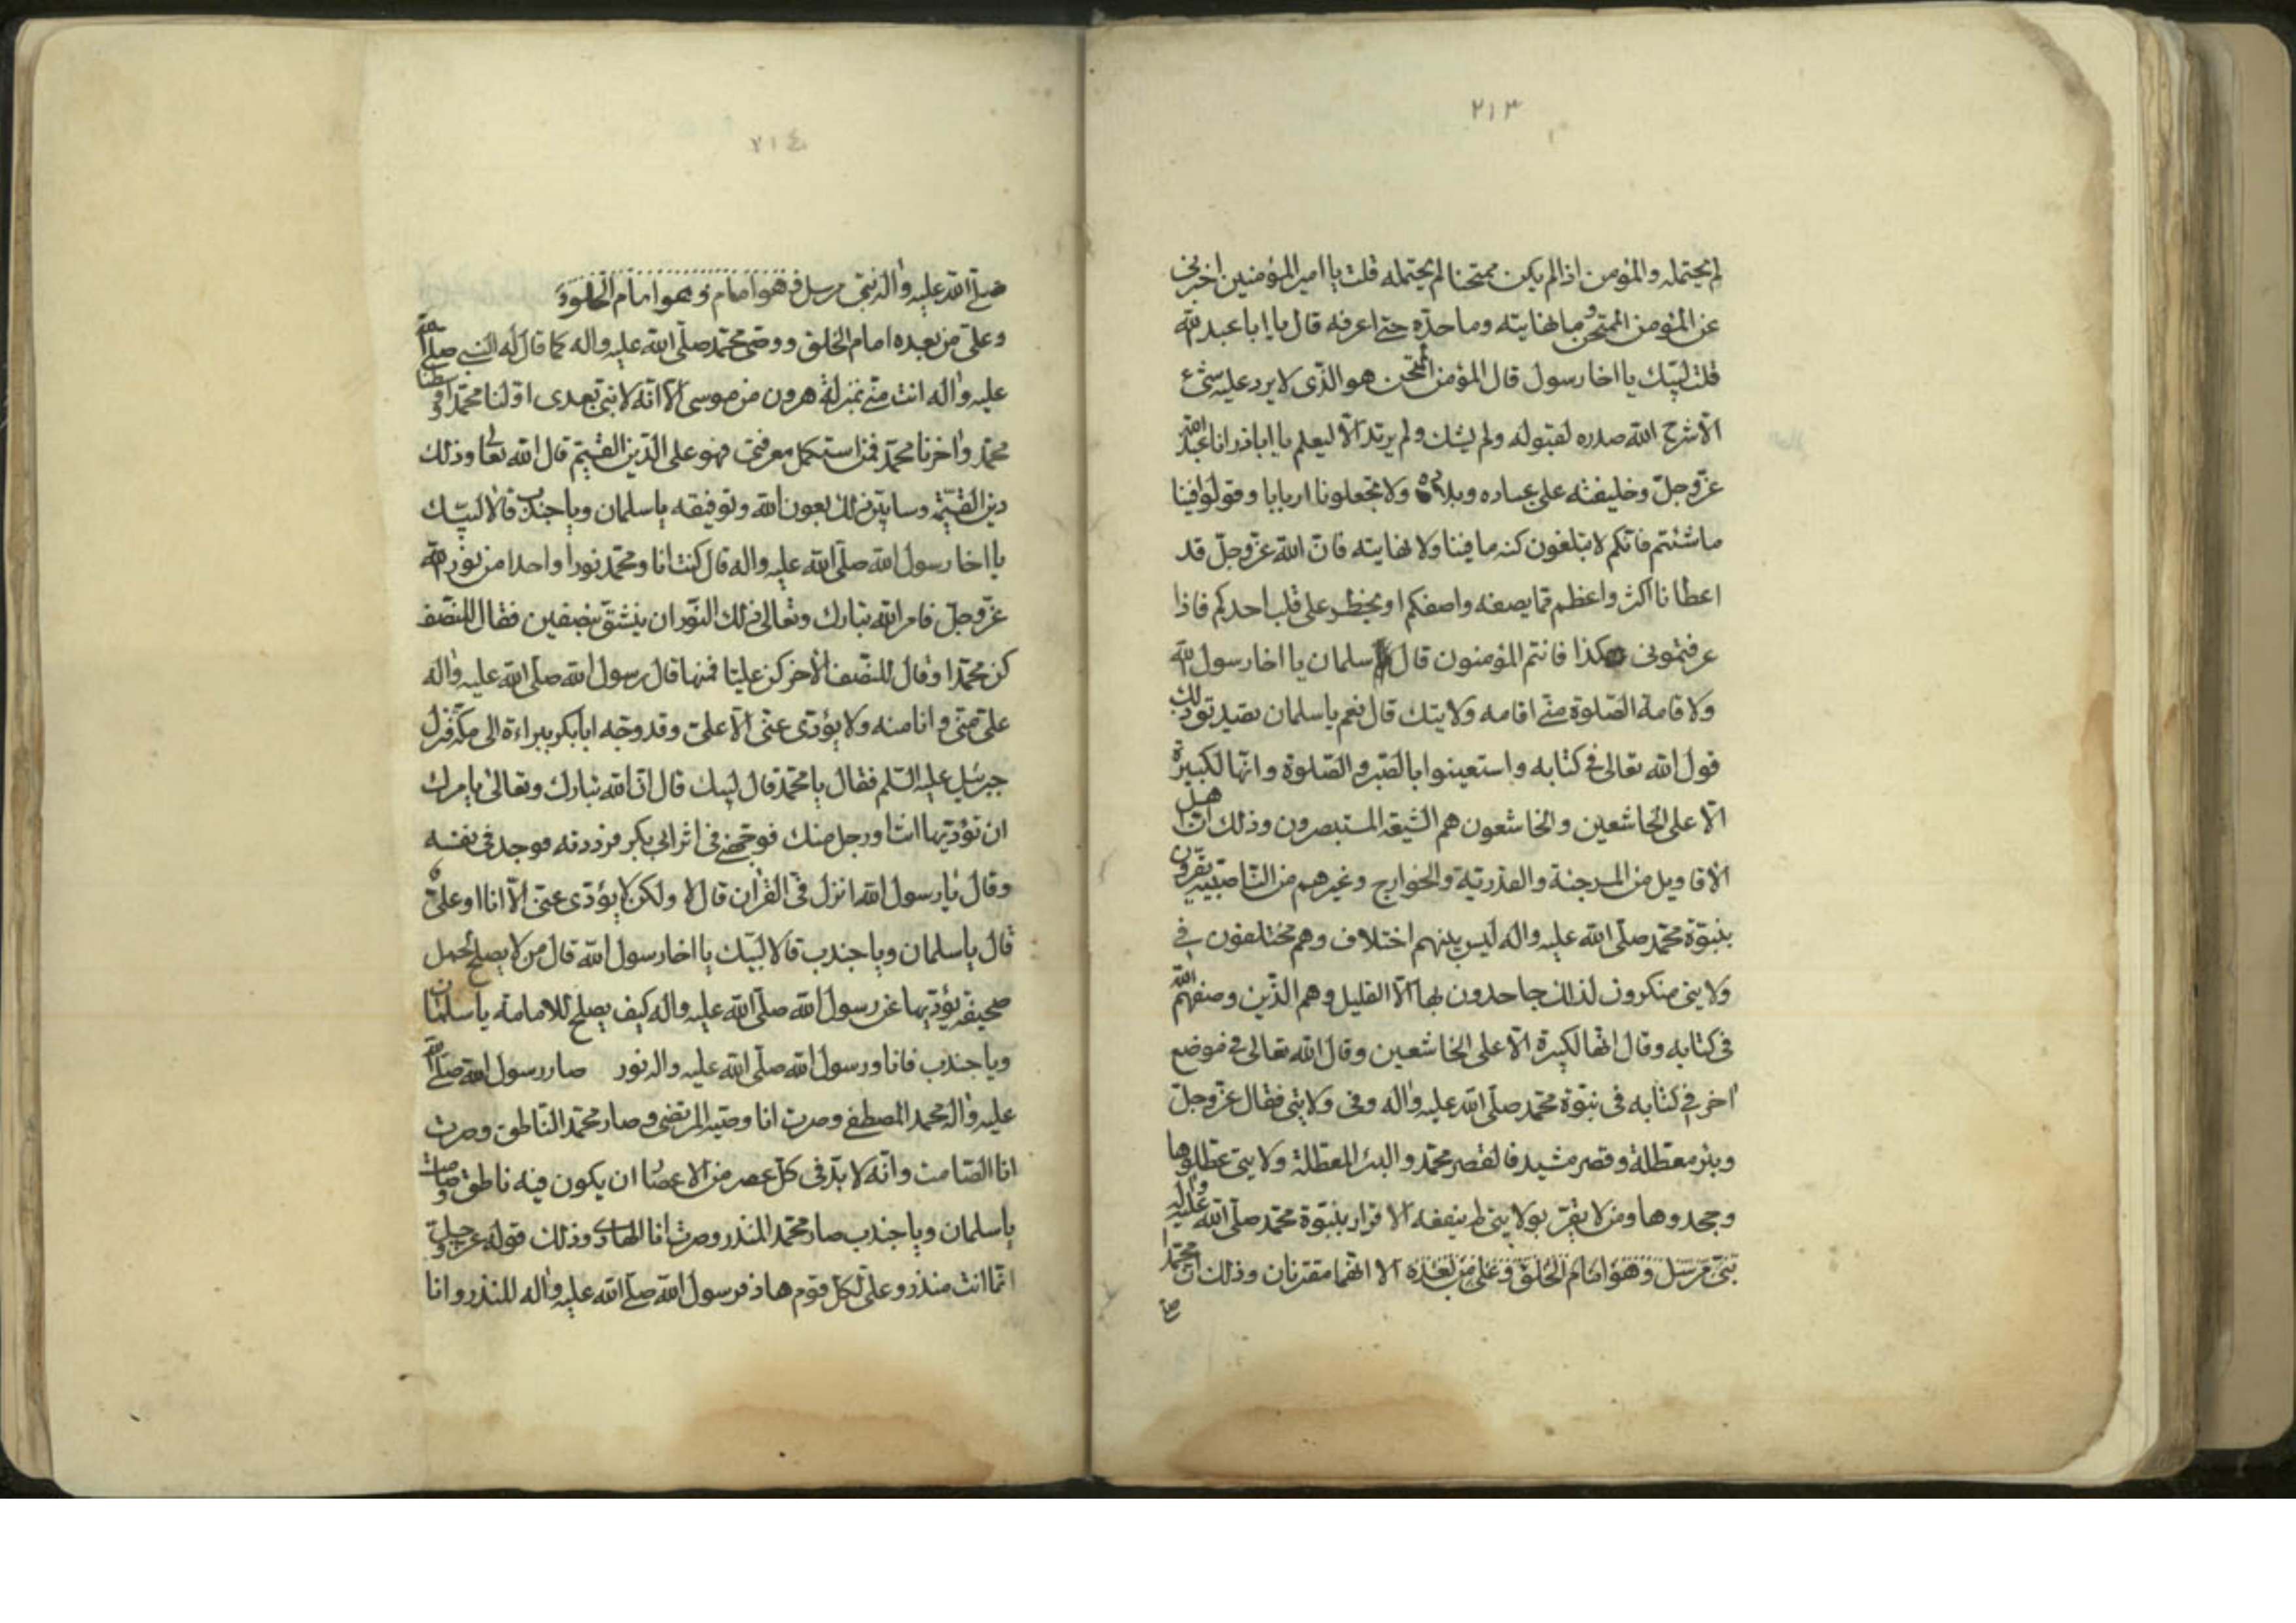 ٢١٣
لم يحتمله والمؤمن اذا لم يكن ممتحنا لم يحتمله قلت يا امير المؤمنين اخبرنى
عن المؤمن الممتحن وما نهايته وما حدّه حتى اعرفه قال يا ابا عبد الله
قلت لبّيك يا اخا رسول قال المؤمن الممتحن هو الذى لا يرد عليه شئ
الّا شرح الله صدره لقبوله ولم يشك ولم يرتد الا ليعلم يا اباذر انا عبد الله
عزّوجلّ وخليفته على عباده وبلاده ولا تجعلونا اربابا وقولوا فينا
ما شئتم فانكم لا تبلغون كنه ما فينا ولا نهايته فانّ الله عزّوجلّ قد
اعطانا اكثر واعظم مما يصفه واصفكم او يخطر على قلب احدكم فاذا
عرفتمونى هكذا فانتم المؤمنون قال سلمان يا اخا رسول الله
ولا قامة الصّلوة من اقامه ولايتك قال نعم يا سلمان ذلك
قول الله تعالى فى كتابه واستعينوا بالصّبر والصّلوة وانّها لكبيرة
الّا على الخاشعين والخاشعون هم الشيعة المستبصرون وذلك انّ اهل
الأقاويل من المرجئة والقدريّة والخوارج وغيرهم من النّاصبية يقرّون
بنبوّة محمّد صلّى الله عليه واله ليس بينهم اختلاف وهم مختلفون فى
ولايتى منكرون لذلك جاحدون بها الّا القليل وهم الذّين وصفهم الله
فى كتابه وقال انها لكبيرة الّا على الخاشعين وقال الله تعالى فى موضع
اخر فى كتابه فى نبوّة محمّد صلّى الله عليه واله وفى ولايتى فقال عزّوجلّ
وبئر معطّلة وقصر مشيد فالقصر محمّد والبئر المعطّلة ولايتى عطّلوها
وجحدوها ومن لا يقرّ بولايتى لم ينفعه الاقرار بنبوّة محمّد صلّى الله عليه واله
نبىّ مرسل وهو امام الخلق وعلى من بعده الا انهما مقترنان وذلك انّ محمّدا
صلى
٢١٤
صلّى الله عليه واله نبىّ مرسل وهو امام وهو امام الخلق
وعلىّ من بعده امام الخلق ووصىّ محمّد صلّى الله عليه واله كما قال له النبى صلّى الله
عليه واله انت منّى بمنزلة هرون من موسى الّا انّه لا نبىّ بعدى اوّلنا محمّد واوسطنا
محمّد واخرنا محمّد فمن استكمل معرفتى فهو على الدّين القيّم قال الله تعا وذلك
دين القيّمة وسابيّن ذلك بعون الله وتوفيقه يا سلمان ويا جندب قالا لبّيك
يا اخا رسول الله صلّى الله عليه واله قال كنت انا ومحمّد نورا واحدا من نور الله
عزّوجلّ فامر الله تبارك وتعالى ذلك النّور ان ينشقّ نصفين فقال للنصّف
كن محمّدا وقال للنصّف الأخر كن عليّا فمنها قال رسول الله صلّى الله عليه واله
علىّ منّى وانا منه ولا يؤدّى عنّى الّا علىّ وقد وجّه ابا بكر ببراءة الى مكّة فنزل
جبرئيل عليه السّلم فقال يا محمّد قال لبيك قال انّ الله تبارك وتعالى يامرك
ان تؤدّيها انت او رجل منك فوجّهنى فى اثر ابى بكر فرددته فوجد فى نفسه
وقال يا رسول الله انزل فىّ القران قال لا ولكن لا يؤدّى عنّى الّا انا او علىّ
قال يا سلمان ويا جندب قالا لبّيك يا اخا رسول الله قال من لا يصلح لحمل
صحيفة يؤدّيها عن رسول الله صلّى الله عليه واله كيف يصلح للامامة يا سلمان
ويا جندب فانا ورسول الله صلّى الله عليه واله نور صار رسول الله صلّى الله
عليه واله محمد المصطفى وصرت انا وصيّه المرتضى وصار محمّد النّاطق وصرت
انا الصّامت وانّه لا بدّ فى كلّ عصر من الاعصار ان يكون فيه ناطق وصامت
يا سلمان ويا جندب صار محمّد المنذر وصرت انا الهادى وذلك قوله عزّ وجلّ
انّما انت منذر وعلى لكلّ قوم هاد فرسول الله صلّى الله عليه واله المنذر وانا